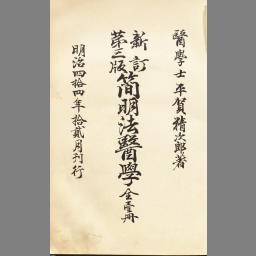 醫學士平賀精次郎著
新訂
第三版
簡明法醫學全壹冊
明治四拾四年拾貳月刊行